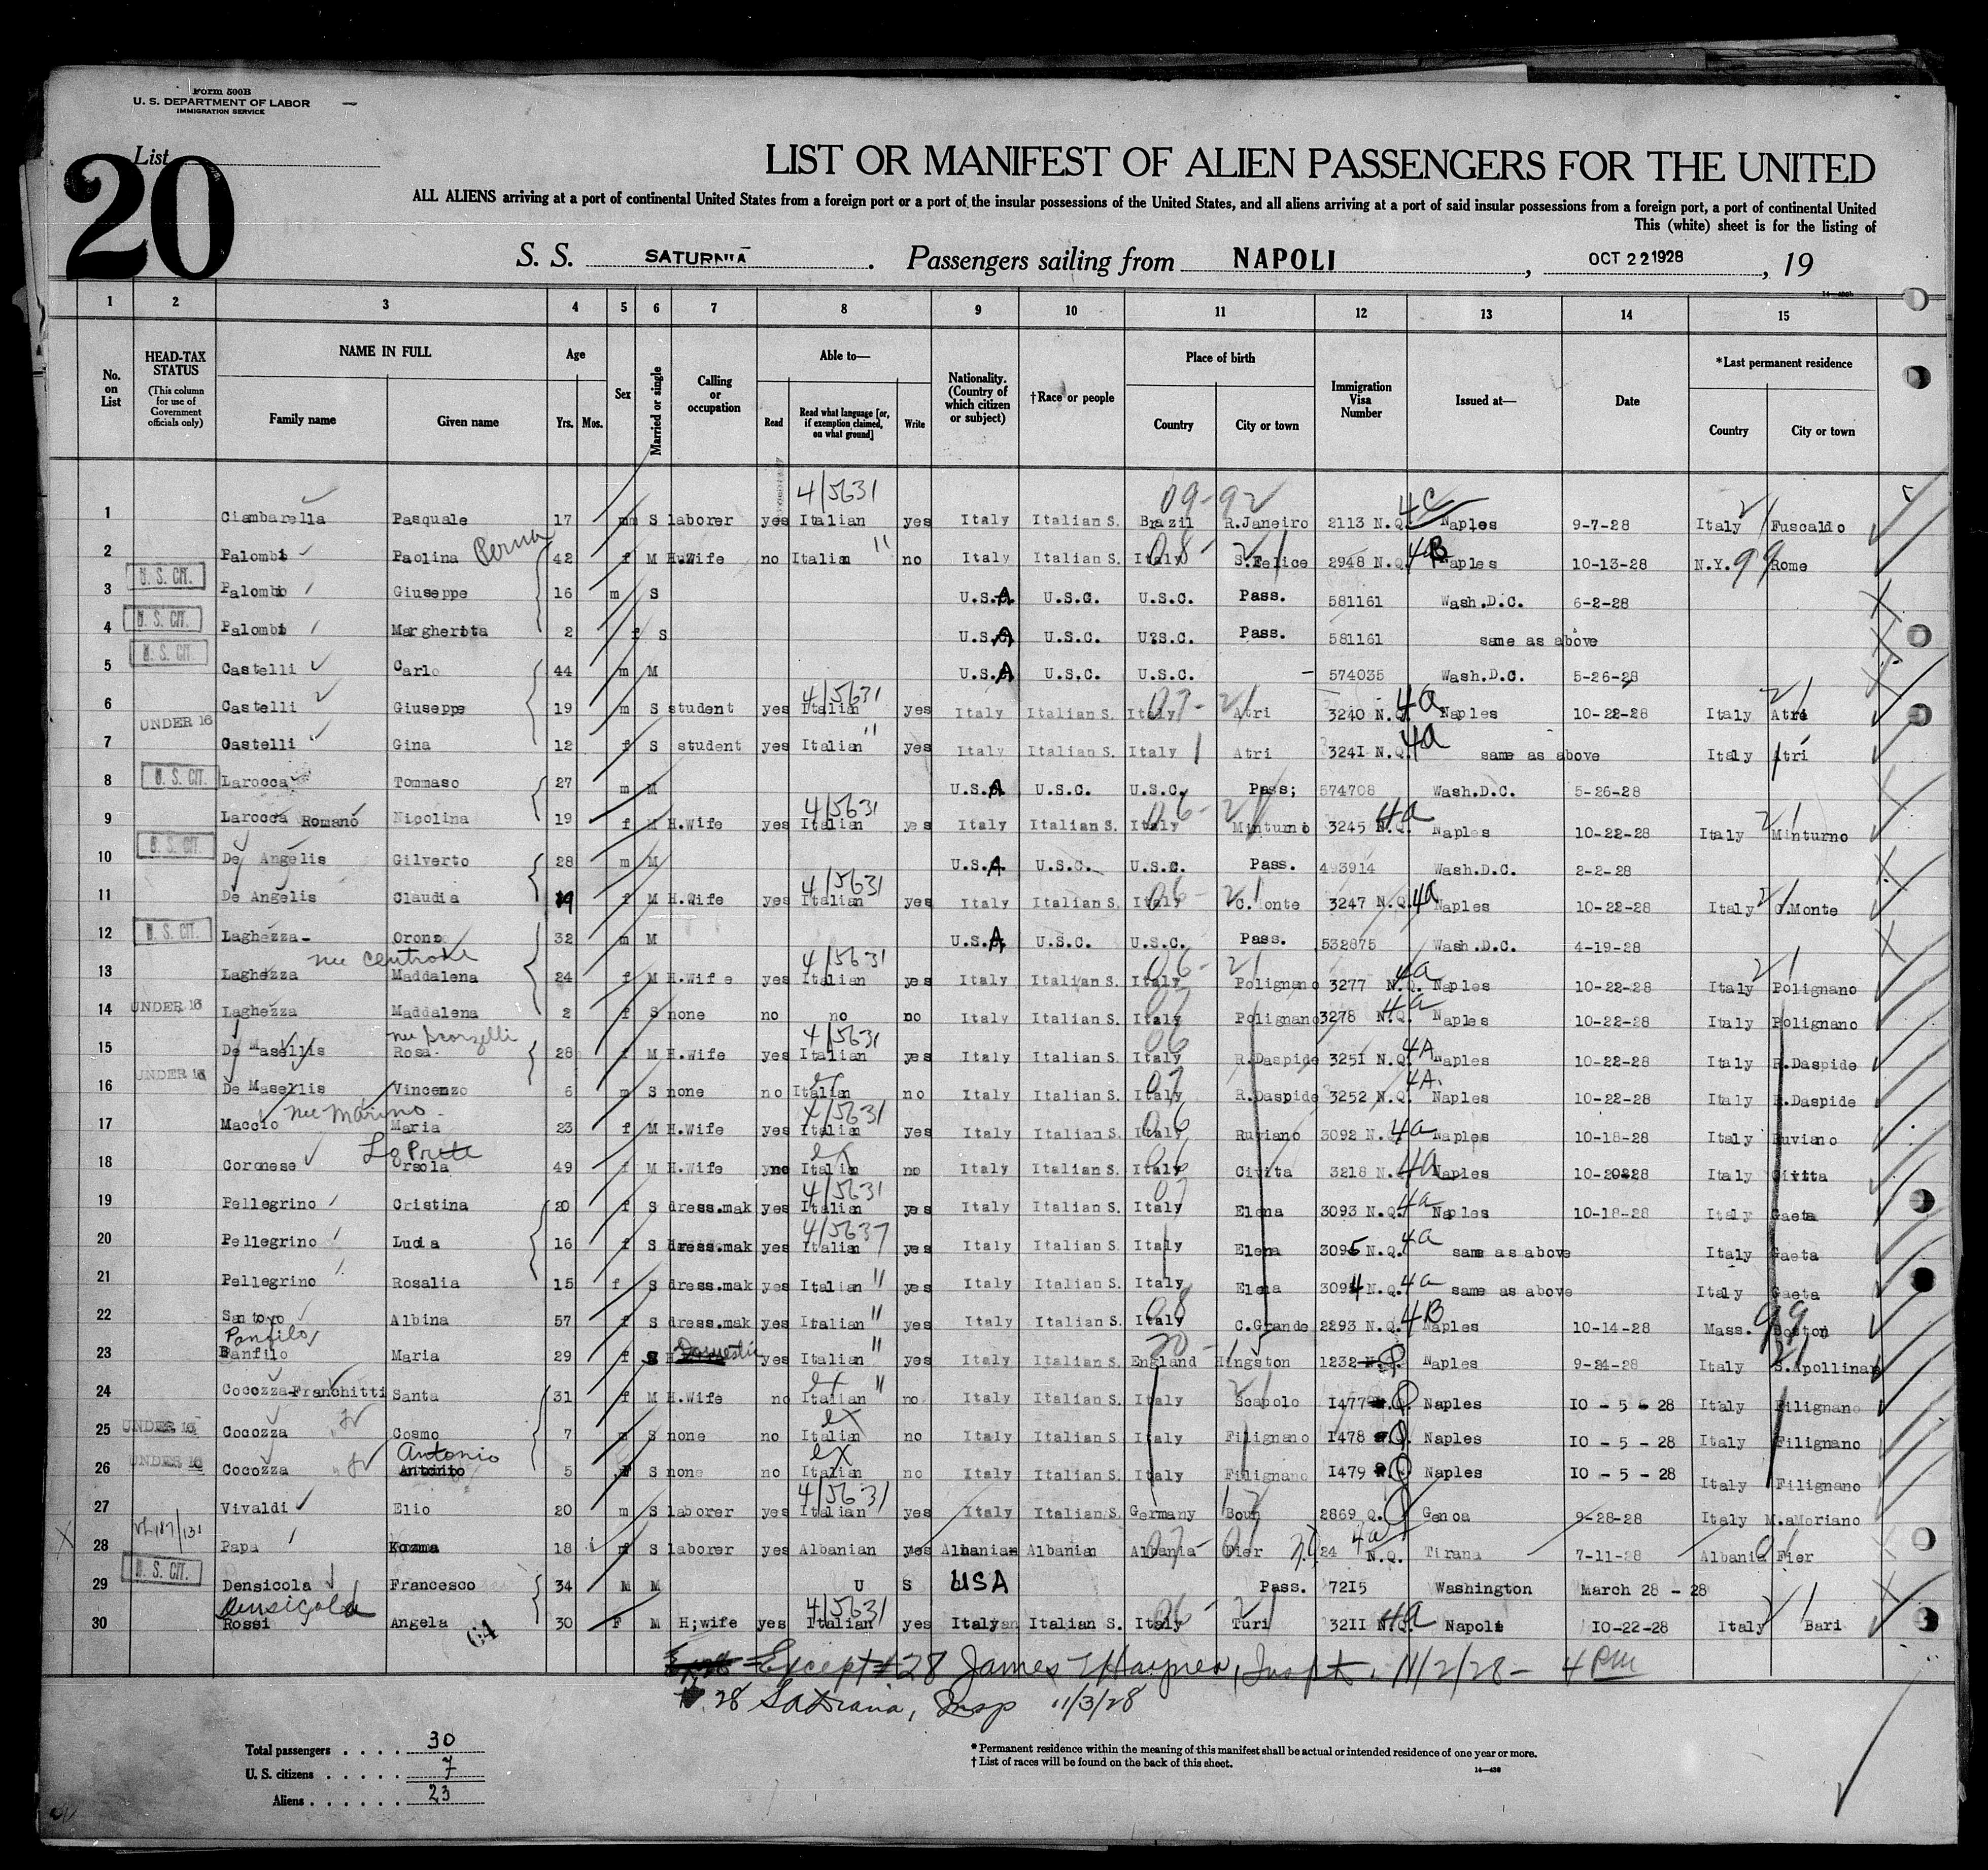 Form 500B
U. S. DEPARTMENT OF LABOR
IMMIGRATION SERVICE
List
20
LIST OR MANIFEST OF ALIEN PASSENGERS FOR THE UNITED
ALL ALIENS arriving at a port of continental United States from a foreign port or a port of the insular possessions of the United States, and all aliens arriving at a port of said insular possessions from a foreign port, a port of continental United
This (white) sheet is for the listing of
S. S. SATURNIA . Passengers sailing from NAPOLI , OCT 22 1928 , 19
1 2 3 4 5 6 7 8 9 10 11 12 13 14 15
No. on List
HEAD-TAX STATUS (This column for use of Government officials only)
NAME IN FULL Family name Given name
Age Yrs. Mos.
Sex
Married or single
Calling or occupation
Able to— Read Read what language [or, if exemption claimed, on what ground] Write
Nationality. (Country of which citizen or subject)
†Race or people
Place of birth Country City or town
Immigration Visa Number
Issued at—
Date
*Last permanent residence Country City or town
4/5631 09-92 4C
1 Ciambarella Pasquale 17 m S laborer yes Italian yes Italy Italian S. Brazil R.Janeiro 2113 N.Q. Naples 9-7-28 Italy Fuscaldo
2 Palombi Paolina Perna 42 f M H.Wife no Italian " no Italy Italian S. Italy S.Felice 2948 N.Q. 4B Naples 10-13-28 N.Y. 99 Rome
3 U. S. CIT. Palombi Giuseppe 16 m S U.S.A U.S.C. U.S.C. Pass. 581161 Wash.D.C. 6-2-28
4 U. S. CIT. Palombi Margherita 2 f S U.S.A U.S.C. U.S.C. Pass. 581161 same as above
5 U. S. CIT. Castelli Carlo 44 m M U.S.A U.S.C. U.S.C. - 574035 Wash.D.C. 5-26-28
6 Castelli Giuseppe 19 m S student yes 4/5631 Italian yes Italy Italian S. Italy Atri 3240 N.Q. 4a Naples 10-22-28 Italy Atri
7 UNDER 16 Castelli Gina 12 f S student yes Italian " yes Italy Italian S. Italy Atri 3241 N.Q. 4a same as above Italy Atri
8 U. S. CIT. Larocca Tommaso 27 m M U.S.A U.S.C. U.S.C. Pass; 574708 Wash.D.C. 5-26-28
9 Larocca Romano Nicolina 19 f M H.Wife yes 4/5631 Italian yes Italy Italian S. Italy Minturno 3245 N.Q. 4a Naples 10-22-28 Italy Minturno
10 U. S. CIT. De Angelis Gilverto 28 m M U.S.A U.S.C. U.S.C. Pass. 493914 Wash.D.C. 2-2-28
11 De Angelis Claudia f M H.Wife yes 4/5631 Italian yes Italy Italian S. Italy C.Monte 3247 N.Q. 4a Naples 10-22-28 Italy C.Monte
12 U. S. CIT. Laghezza- Oronz 32 m M U.S.A U.S.C. U.S.C. Pass. 532875 Wash.D.C. 4-19-28
nee Centrone
13 Laghezza Maddalena 24 f M H.Wife yes 4/5631 Italian yes Italy Italian S. Italy Polignano 3277 N.Q. 4a Naples 10-22-28 Italy Polignano
14 UNDER 16 Laghezza Maddalena 2 f S none no no no Italy Italian S. Italy Polignano 3278 N.Q. 4a Naples 10-22-28 Italy Polignano
nee Scorzelli
15 De Masellis Rosa. 28 f M H.Wife yes 4/5631 Italian yes Italy Italian S. Italy R.Daspide 3251 N.Q. 4A Naples 10-22-28 Italy R.Daspide
16 UNDER 16 De Masellis Vincenzo 6 m S none no Italian no Italy Italian S. Italy R.Daspide 3252 N.Q. 4A. Naples 10-22-28 Italy R.Daspide
17 Maccio nee Marino Maria 23 f M H.Wife yes 4/5631 Italian yes Italy Italian S. Italy Ruviano 3092 N.Q. 4a Naples 10-18-28 Italy Ruviano
18 Coronese Lo Prete Orsola 49 f M H.Wife no ex Italian no Italy Italian S. Italy Civita 3218 N.Q. 4a Naples 10-20-28 Italy Civita
19 Pellegrino Cristina 20 f S dress.mak yes 4/5631 Italian yes Italy Italian S. Italy Elena 3093 N.Q. 4a Naples 10-18-28 Italy Gaeta
20 Pellegrino Lucia 16 f S dress.mak yes 4/5637 Italian yes Italy Italian S. Italy Elena 3095 N.Q. 4a same as above Italy Gaeta
21 Pellegrino Rosalia 15 f S dress.mak yes Italian " yes Italy Italian S. Italy Elena 3094 N.Q. 4a same as above Italy Gaeta
22 Santoyo Albina 57 f S dress.mak yes Italian " yes Italy Italian S. Italy C.Grande 2293 N.Q. 4B Naples 10-14-28 Mass. 99 Boston
Panfilo
23 Banfilo Maria 29 f S Domestic yes Italian " yes Italy Italian S. England Hingston 1232 Q. Naples 9-24-28 Italy S.Apollinar
24 Cocozza-Franchitti Santa 31 f M H.Wife no ex Italian " no Italy Italian S. Italy Scapolo 1477 Q. Naples 10 - 5 - 28 Italy Filignano
25 UNDER 16 Cocozza Cosmo 7 m S none no ex Italian no Italy Italian S. Italy Filignano 1478 Q. Naples 10 - 5 - 28 Italy Filignano
26 UNDER 16 Cocozza Antonio 5 S none no ex Italian no Italy Italian S. Italy Filignano 1479 Q. Naples 10 - 5 - 28 Italy Filignano
27 Vivaldi Elio 20 m S laborer yes 4/5631 Italian yes Italy Italian S. Germany 2869 Q. Genoa 9-28-28 Italy M.aMoriano
28 Papa Kozma 18 m S laborer yes Albanian yes Albanian Albanian Albania Fier 24 N.Q. 4a Tirana 7-11-28 Albania Fier
29 U. S. CIT. Densicola Francesco 34 M M U S USA Pass. 7215 Washington March 28 - 28
Densigola
30 Rossi Angela 64 30 F M H;wife yes 4/5631 Italian yes Italy Italian S. Italy Turi 3211 N.Q. 4a Napoli 10-22-28 Italy Bari
Except #28 James T Haynes, Inspt. 11/2/28 - 4 PM
28 Satriana, Insp 11/3/28
Total passengers . . . . 30
U. S. citizens . . . . . 7
Aliens . . . . . . 23
* Permanent residence within the meaning of this manifest shall be actual or intended residence of one year or more.
† List of races will be found on the back of this sheet.